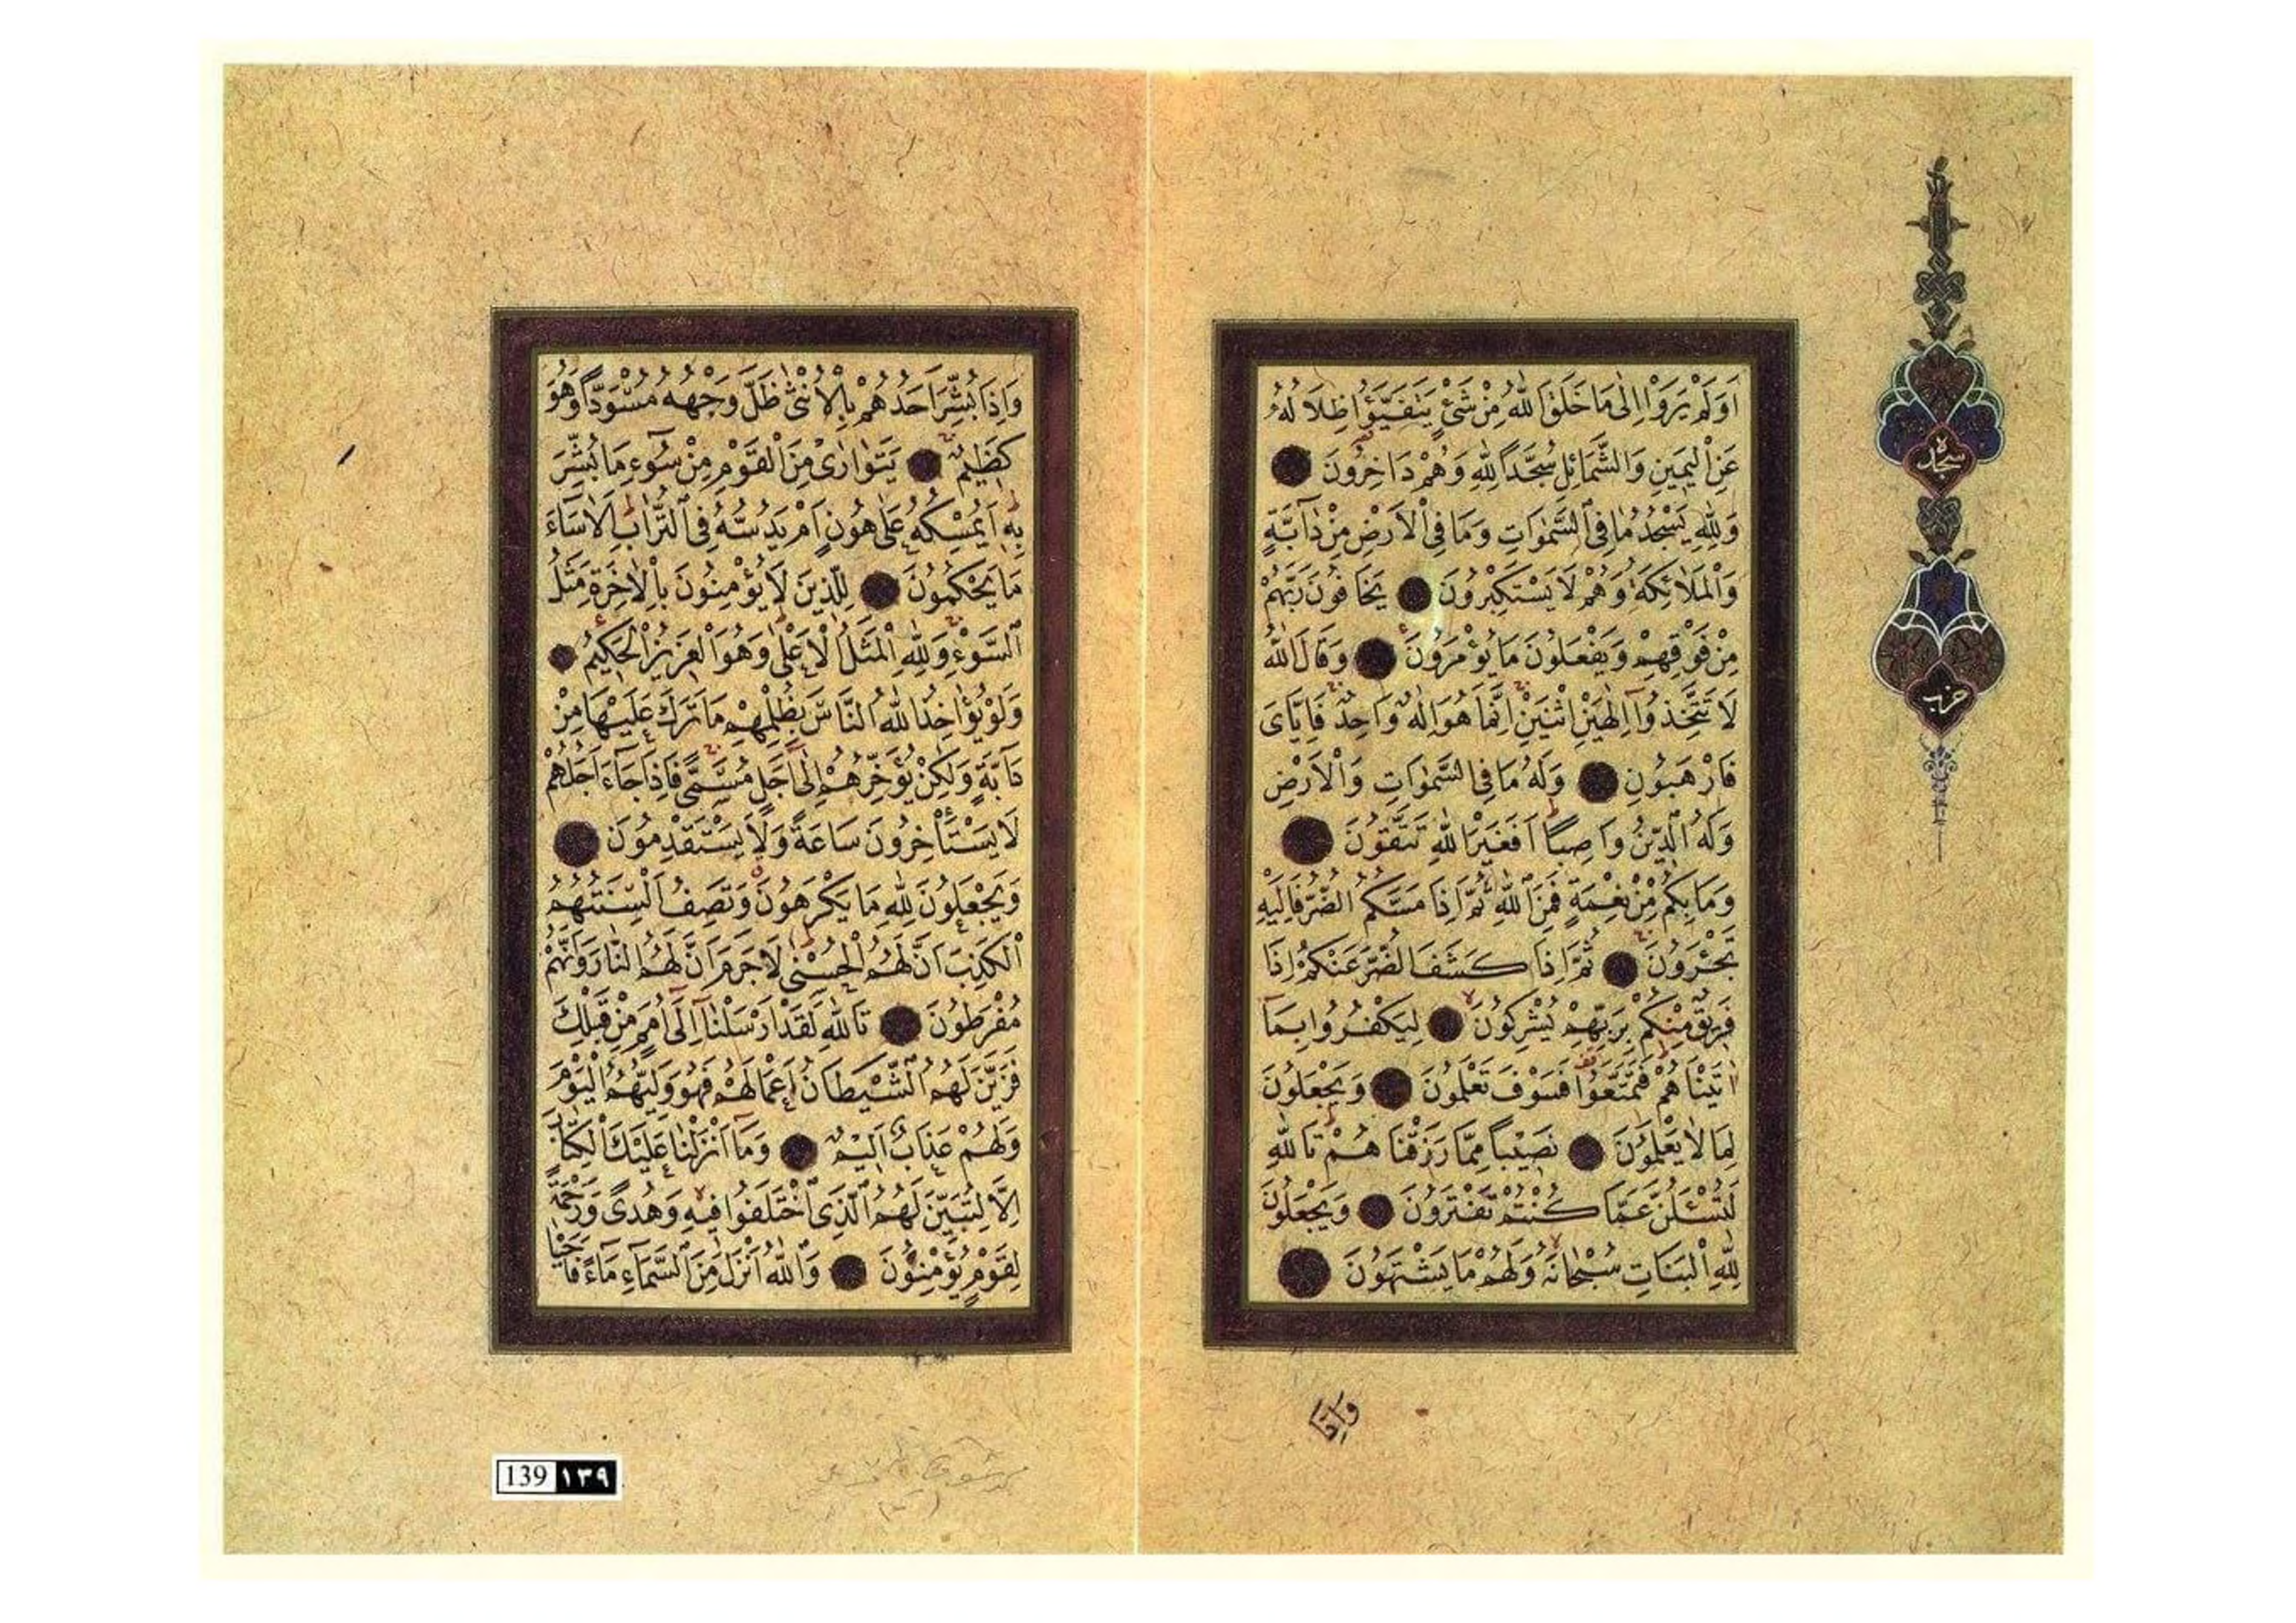 اَوَلَمْ يَرَوْا اِلٰى مَا خَلَقَ اللّٰهُ مِنْ شَىْءٍ يَتَفَيَّؤُا ظِلَالُهُ
عَنِ الْيَمِينِ وَالشَّمَائِلِ سُجَّدًا لِلّٰهِ وَهُمْ دَاخِرُونَ
وَلِلّٰهِ يَسْجُدُ مَا فِى السَّمٰوَاتِ وَمَا فِى الْاَرْضِ مِنْ دَآبَّةٍ
وَالْمَلَائِكَةُ وَهُمْ لَا يَسْتَكْبِرُونَ يَخَافُونَ رَبَّهُمْ
مِنْ فَوْقِهِمْ وَيَفْعَلُونَ مَا يُؤْمَرُونَ وَقَالَ اللّٰهُ
لَا تَتَّخِذُوآ اِلٰهَيْنِ اثْنَيْنِ اِنَّمَا هُوَ اِلٰهٌ وَاحِدٌ فَاِيَّاىَ
فَارْهَبُونِ وَلَهُ مَا فِى السَّمٰوَاتِ وَالْاَرْضِ
وَلَهُ الدِّينُ وَاصِبًا اَفَغَيْرَ اللّٰهِ تَتَّقُونَ
وَمَا بِكُمْ مِنْ نِعْمَةٍ فَمِنَ اللّٰهِ ثُمَّ اِذَا مَسَّكُمُ الضُّرُّ فَاِلَيْهِ
تَجْـَٔرُونَ ثُمَّ اِذَا كَشَفَ الضُّرَّ عَنْكُمْ اِذَا
فَرِيقٌ مِنْكُمْ بِرَبِّهِمْ يُشْرِكُونَ لِيَكْفُرُوا بِمَآ
اٰتَيْنَاهُمْ فَتَمَتَّعُوا فَسَوْفَ تَعْلَمُونَ وَيَجْعَلُونَ
لِمَا لَا يَعْلَمُونَ نَصِيبًا مِمَّا رَزَقْنَاهُمْ تَاللّٰهِ
لَتُسْـَٔلُنَّ عَمَّا كُنْتُمْ تَفْتَرُونَ وَيَجْعَلُونَ
لِلّٰهِ الْبَنَاتِ سُبْحَانَهُ وَلَهُمْ مَا يَشْتَهُونَ
وَاِذَا
سجده
حزب
وَاِذَا بُشِّرَ اَحَدُهُمْ بِالْاُنْثٰى ظَلَّ وَجْهُهُ مُسْوَدًّا وَهُوَ
كَظِيمٌ يَتَوَارٰى مِنَ الْقَوْمِ مِنْ سُوٓءِ مَا بُشِّرَ
بِهِ اَيُمْسِكُهُ عَلٰى هُونٍ اَمْ يَدُسُّهُ فِى التُّرَابِ اَلَا سَآءَ
مَا يَحْكُمُونَ لِلَّذِينَ لَا يُؤْمِنُونَ بِالْاٰخِرَةِ مَثَلُ
السَّوْءِ وَلِلّٰهِ الْمَثَلُ الْاَعْلٰى وَهُوَ الْعَزِيزُ الْحَكِيمُ
وَلَوْ يُؤَاخِذُ اللّٰهُ النَّاسَ بِظُلْمِهِمْ مَا تَرَكَ عَلَيْهَا مِنْ
دَآبَّةٍ وَلٰكِنْ يُؤَخِّرُهُمْ اِلٰٓى اَجَلٍ مُسَمًّى فَاِذَا جَآءَ اَجَلُهُمْ
لَا يَسْتَأْخِرُونَ سَاعَةً وَلَا يَسْتَقْدِمُونَ
وَيَجْعَلُونَ لِلّٰهِ مَا يَكْرَهُونَ وَتَصِفُ اَلْسِنَتُهُمُ
الْكَذِبَ اَنَّ لَهُمُ الْحُسْنٰى لَا جَرَمَ اَنَّ لَهُمُ النَّارَ وَاَنَّهُمْ
مُفْرَطُونَ تَاللّٰهِ لَقَدْ اَرْسَلْنَآ اِلٰٓى اُمَمٍ مِنْ قَبْلِكَ
فَزَيَّنَ لَهُمُ الشَّيْطَانُ اَعْمَالَهُمْ فَهُوَ وَلِيُّهُمُ الْيَوْمَ
وَلَهُمْ عَذَابٌ اَلِيمٌ وَمَآ اَنْزَلْنَا عَلَيْكَ الْكِتَابَ
اِلَّا لِتُبَيِّنَ لَهُمُ الَّذِى اخْتَلَفُوا فِيهِ وَهُدًى وَرَحْمَةً
لِقَوْمٍ يُؤْمِنُونَ وَاللّٰهُ اَنْزَلَ مِنَ السَّمَآءِ مَآءً فَاَحْيَا
139 ١٣٩